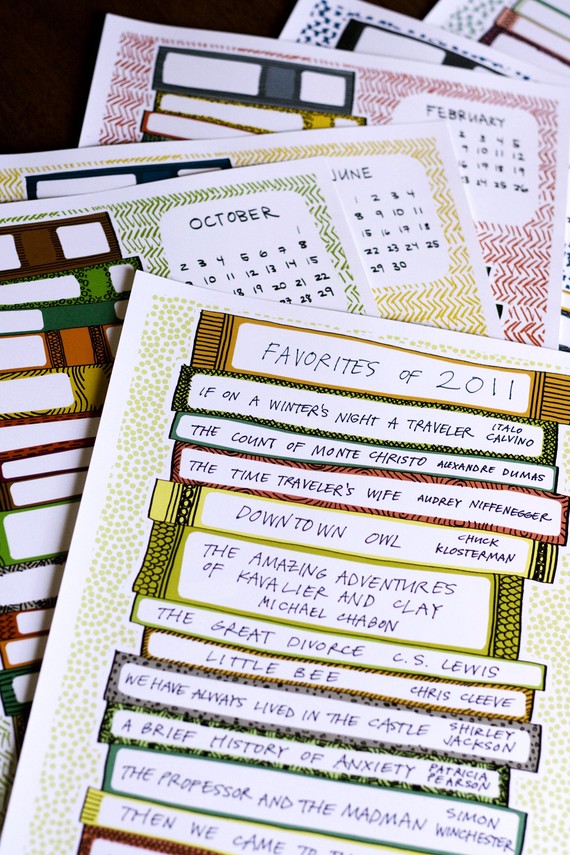 FEBRUARY
2 3 4 5
9 10 11 12
16 17 18 19
23 24 25 26
JUNE
1 2 3 4
8 9 10 11
15 16 17 18
22 23 24 25
29 30
OCTOBER
1
2 3 4 5 6 7 8
10 11 12 13 14 15
18 19 20 21 22
27 28 29
FAVORITES OF 2011
IF ON A WINTER'S NIGHT A TRAVELER ITALO CALVINO
THE COUNT OF MONTE CHRISTO ALEXANDRE DUMAS
THE TIME TRAVELER'S WIFE AUDREY NIFFENEGGER
DOWNTOWN OWL CHUCK KLOSTERMAN
THE AMAZING ADVENTURES
OF KAVALIER AND CLAY
MICHAEL CHABON
THE GREAT DIVORCE C.S. LEWIS
LITTLE BEE CHRIS CLEEVE
WE HAVE ALWAYS LIVED IN THE CASTLE SHIRLEY JACKSON
A BRIEF HISTORY OF ANXIETY PATRICIA PEARSON
THE PROFESSOR AND THE MADMAN SIMON WINCHESTER
THEN WE CAME TO